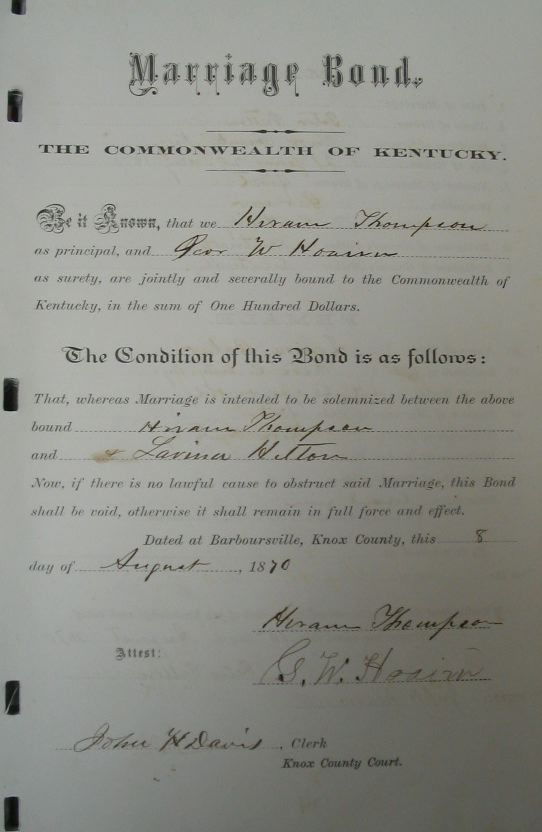 Marriage Bond.
THE COMMONWEALTH OF KENTUCKY.
Be it Known, that we Hiram Thompson
as principal, and Geor W Hoairn
as surety, are jointly and severally bound to the Commonwealth of
Kentucky, in the sum of One Hundred Dollars.
The Condition of this Bond is as follows:
That, whereas Marriage is intended to be solemnized between the above
bound Hiram Thompson
and & Lavina Helton
Now, if there is no lawful cause to obstruct said Marriage, this Bond
shall be void, otherwise it shall remain in full force and effect.
Dated at Barboursville, Knox County, this 8
day of August, 1870
Hiram Thompson
Attest:
G. W. Hoairn
John H Davis, Clerk
Knox County Court.